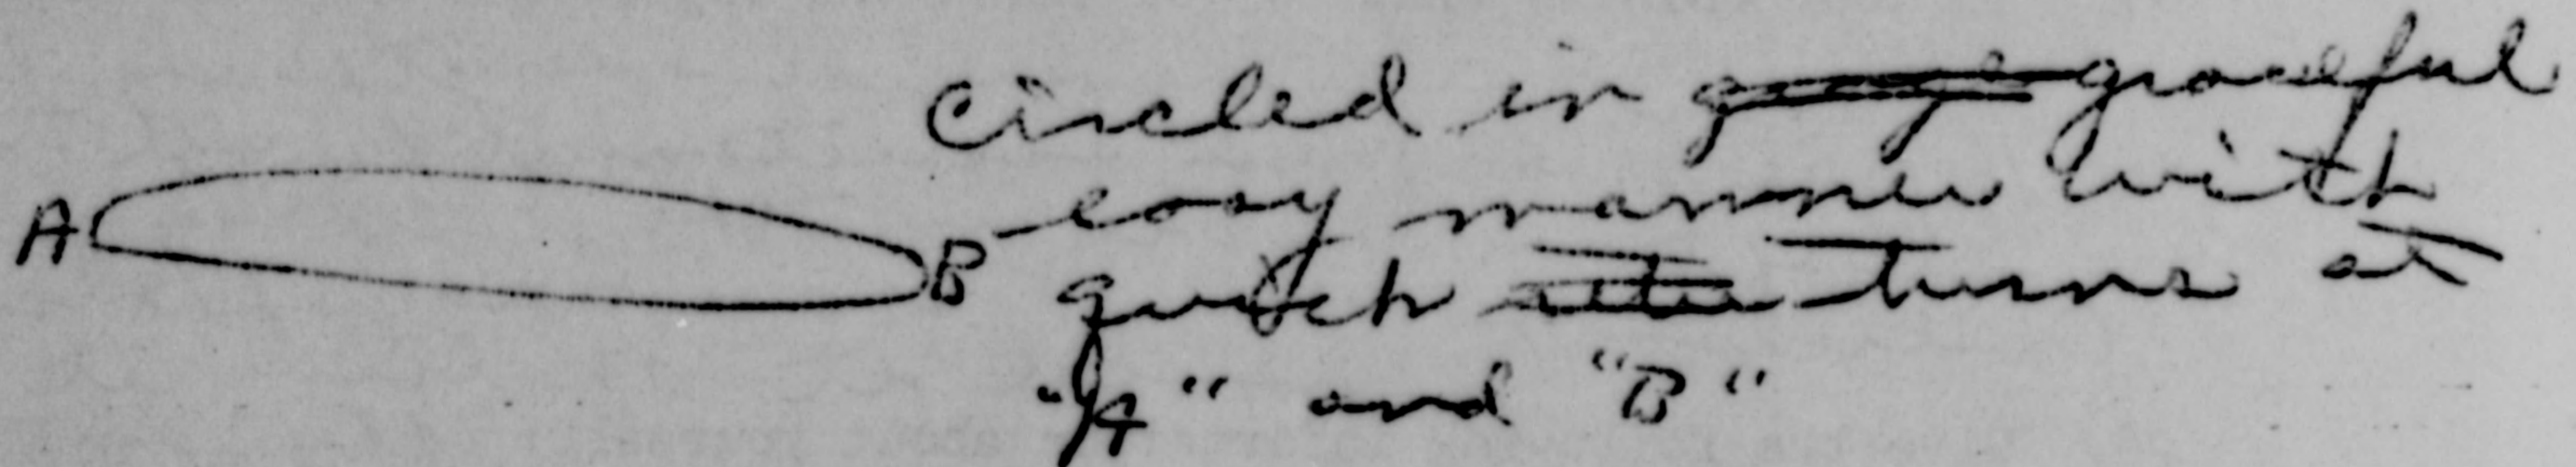 circled in graceful
A B easy manner with
quick turns at
"A" and "B"